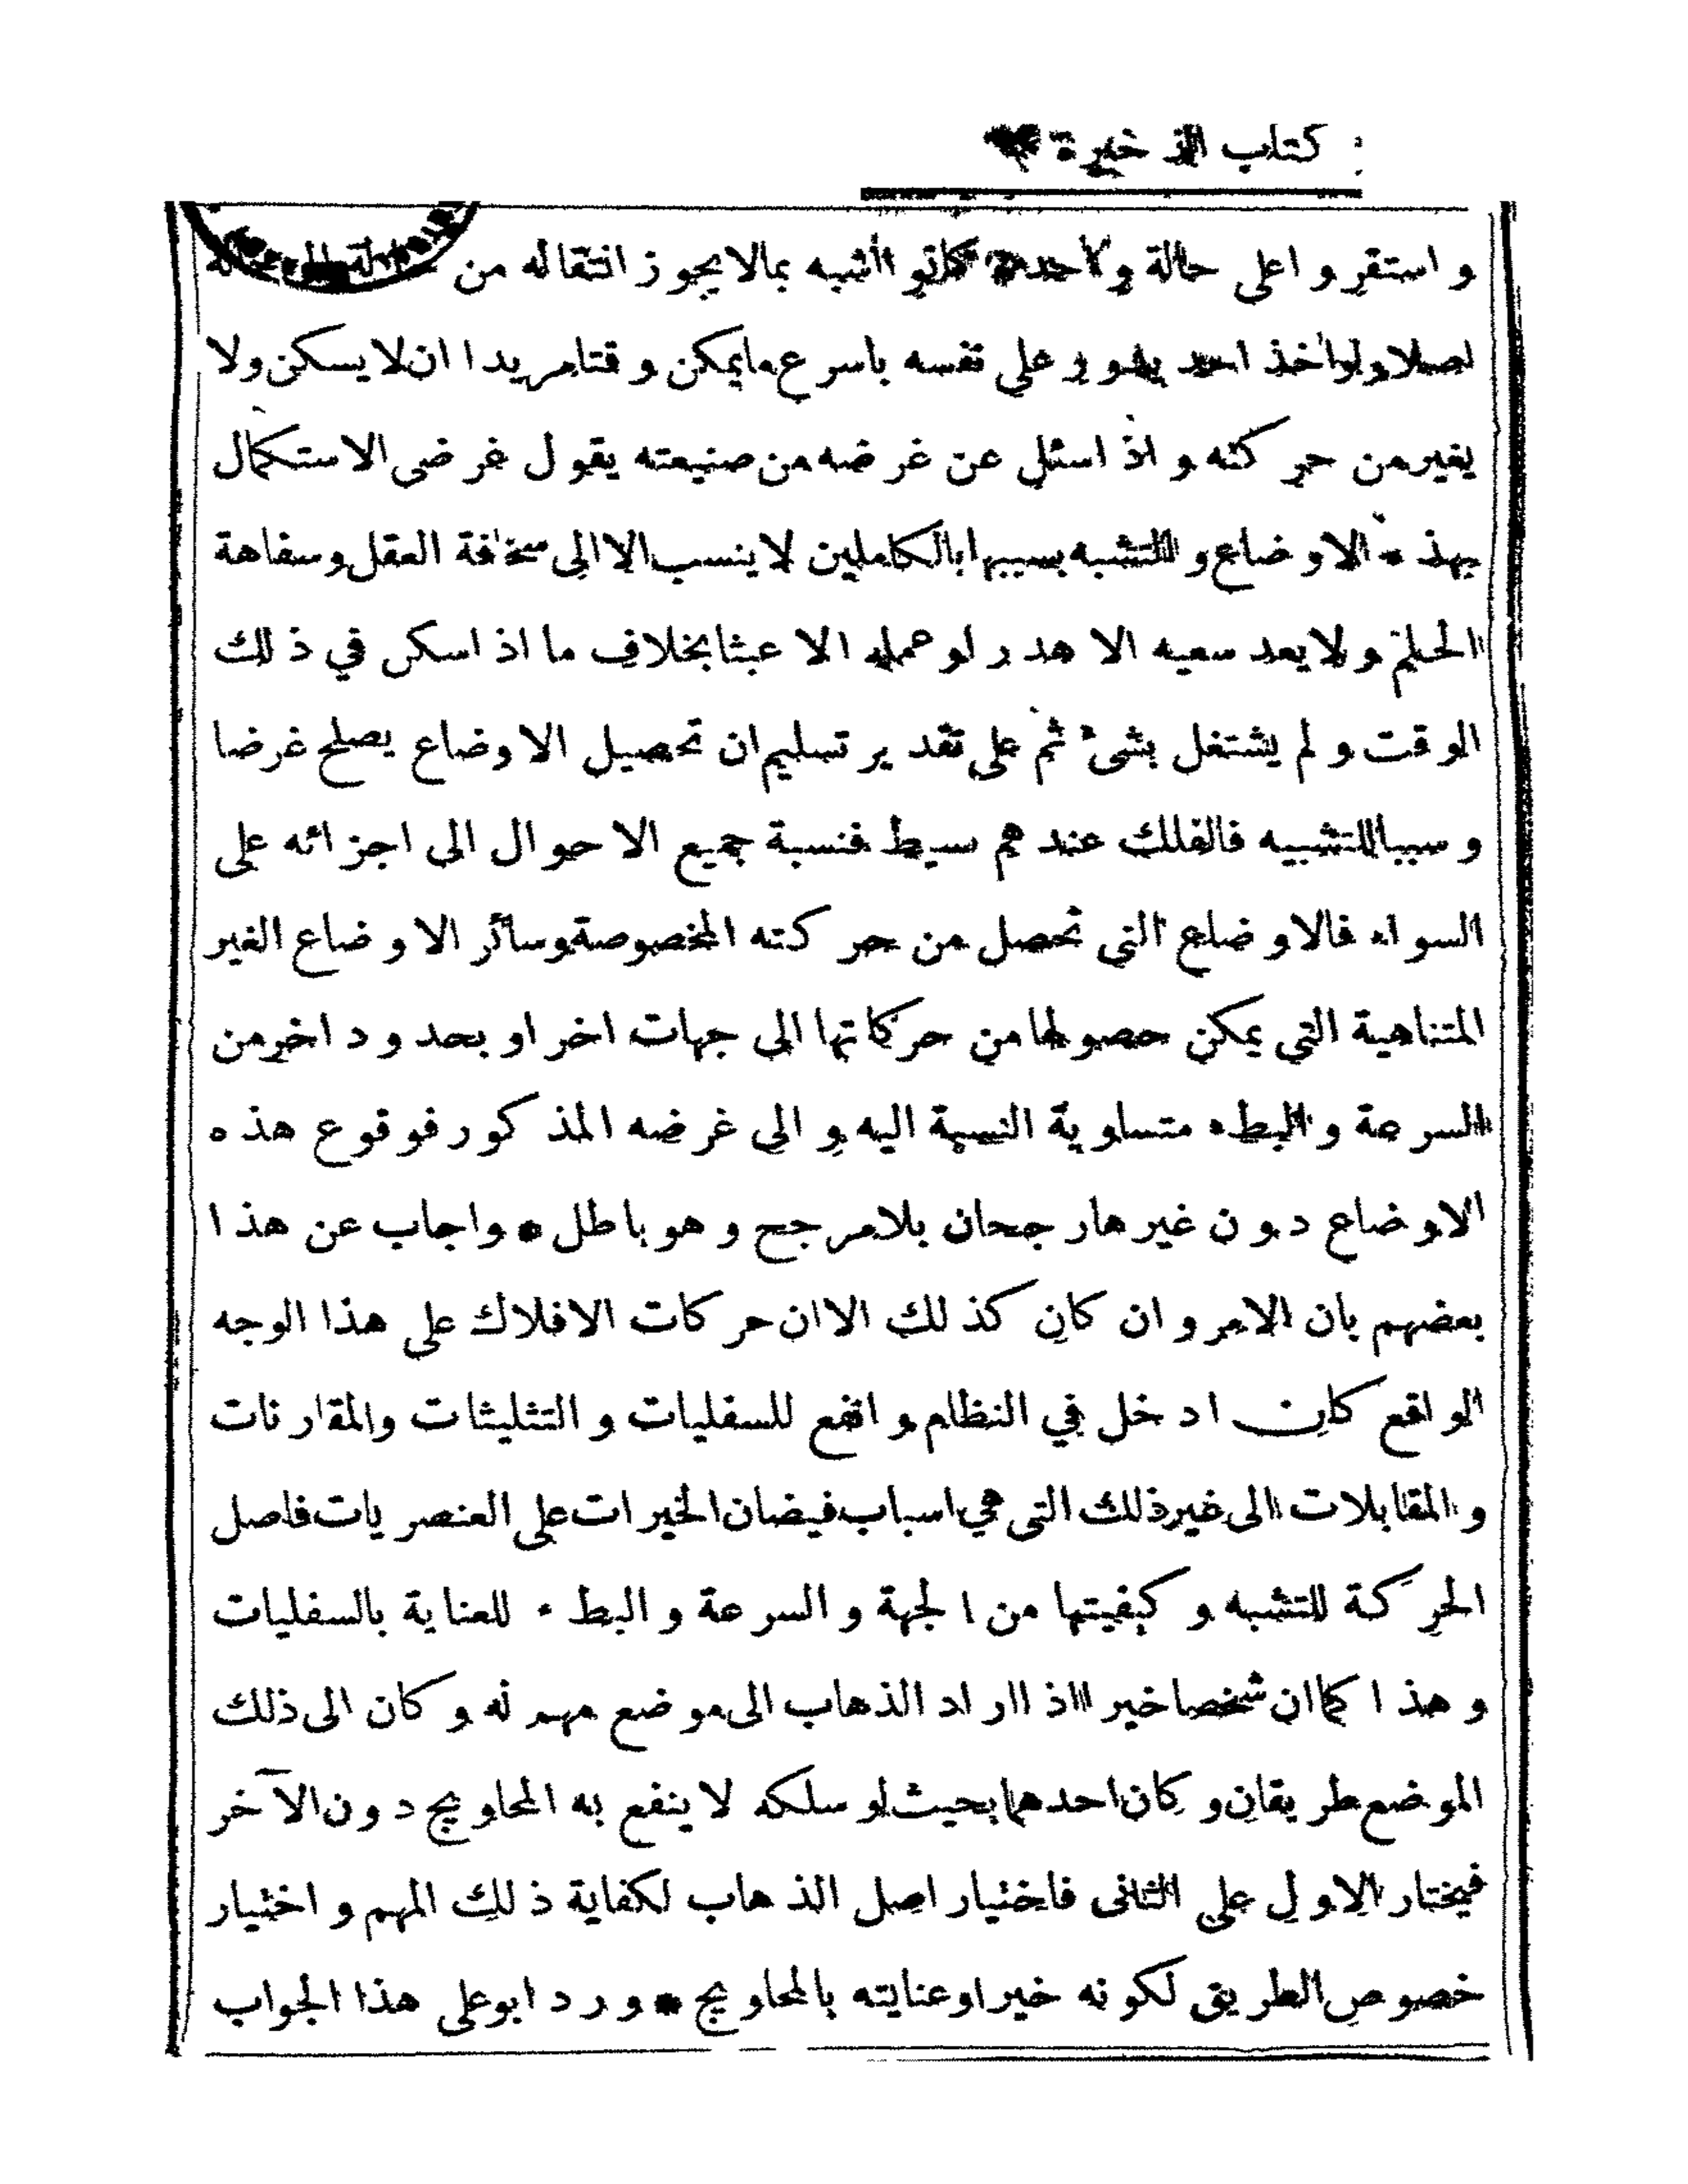 كتاب الذخيرة
واستقروا على حالة واحدة كانوا أشبه بما لا يجوز انتقاله من حالة الى حالة
اصلا ولو اخذ احد يدور على نفسه باسرع ما يمكن وقتا مريدا ان لا يسكن ولا
يغير من حركته واذا سئل عن غرضه من صنيعته يقول غرضى الاستكمال
بهذه الاوضاع والتشبه بسببها بالكاملين لا ينسب الا الى سخافة العقل وسفاهة
الحلم ولا يعد سعيه الا هدرا وعمله الا عبثا بخلاف ما اذا سكن في ذلك
الوقت ولم يشتغل بشىء ثم على تقدير تسليم ان تحصيل الاوضاع يصلح غرضا
وسببا للتشبيه فالفلك عندهم بسيط فنسبة جميع الاحوال الى اجزائه على
السواء فالاوضاع التى تحصل من حركته المخصوصة وسائر الاوضاع الغير
المتناهية التي يمكن حصولها من حركاتها الى جهات اخر او بحدود اخر من
السرعة والبطء متساوية النسبة اليه والى غرضه المذكور فوقوع هذه
الاوضاع دون غيرها رجحان بلا مرجح وهو باطل * واجاب عن هذا
بعضهم بان الامر وان كان كذلك الا ان حركات الافلاك على هذا الوجه
الواقع كان ادخل في النظام وانفع للسفليات والتثليثات والمقارنات
والمقابلات الى غير ذلك التى هي اسباب فيضان الخيرات على العنصريات فاصل
الحركة للتشبه وكيفيتها من الجهة والسرعة والبطء للعناية بالسفليات
وهذا كما ان شخصا خيرا اذا اراد الذهاب الى موضع مهم له وكان الى ذلك
الموضع طريقان وكان احدهما بحيث لو سلكه لا ينفع به المحاويج دون الآخر
فيختار الاول على الثانى فاختيار اصل الذهاب لكفاية ذلك المهم واختيار
خصوص الطريق لكونه خيرا وعنايته بالمحاويج * ورد ابو على هذا الجواب